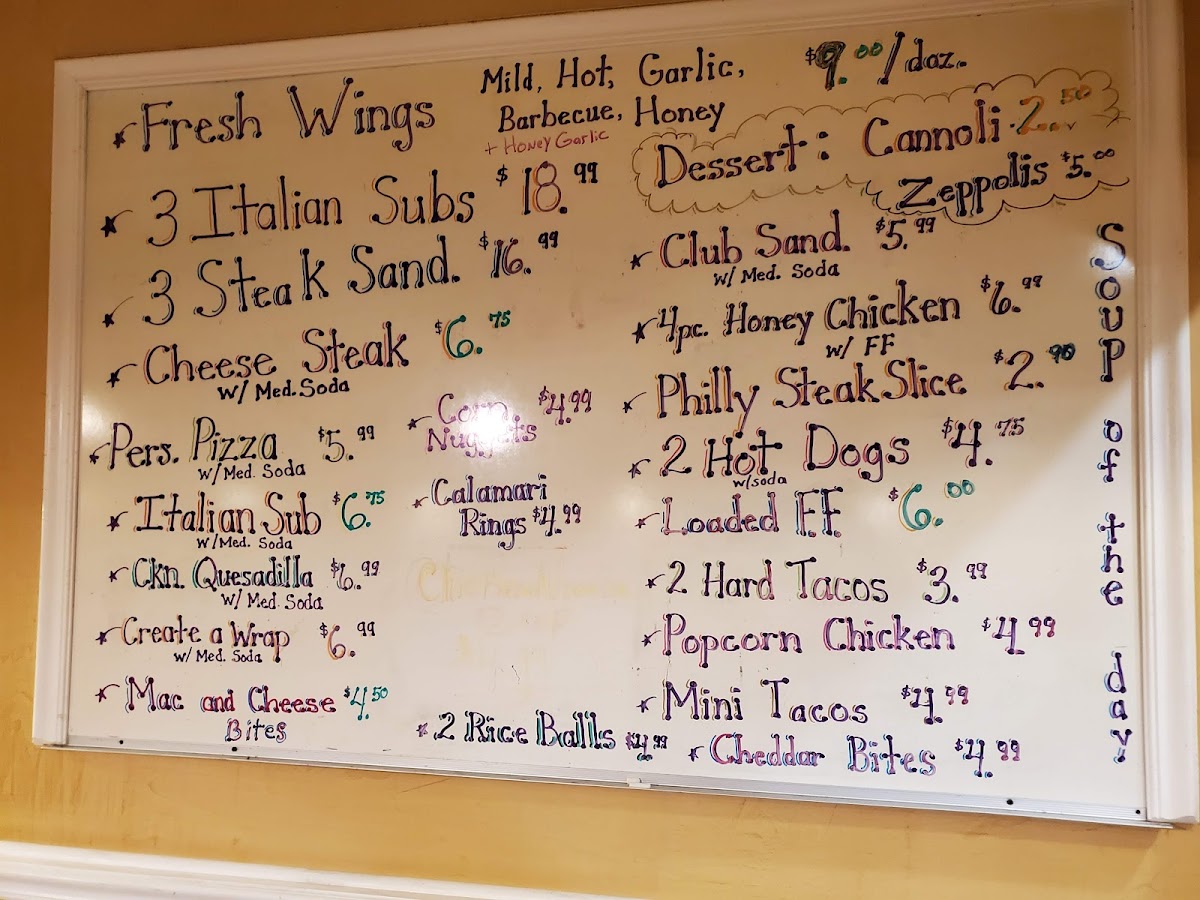 Fresh Wings
Mild, Hot, Garlic,
Barbecue, Honey
+ Honey Garlic
$9.00/doz.
3 Italian Subs $18.99
3 Steak Sand. $16.99
Cheese Steak $6.75
w/ Med. Soda
Pers. Pizza $5.99
w/ Med. Soda
Italian Sub $6.75
w/ Med. Soda
Ckn. Quesadilla $6.99
w/ Med. Soda
Create a Wrap $6.99
w/ Med. Soda
Mac and Cheese $4.50
Bites
Corn $4.99
Nuggets
Calamari
Rings $4.99
2 Rice Balls $4.99
Dessert: Cannoli 2.50
Zeppolis $5.00
Club Sand. $5.99
w/ Med. Soda
4pc. Honey Chicken $6.99
w/ FF
Philly Steak Slice $2.90
2 Hot Dogs $4.75
w/soda
Loaded F.F. $6.00
2 Hard Tacos $3.99
Popcorn Chicken $4.99
Mini Tacos $4.99
Cheddar Bites $4.99
Soup of the day